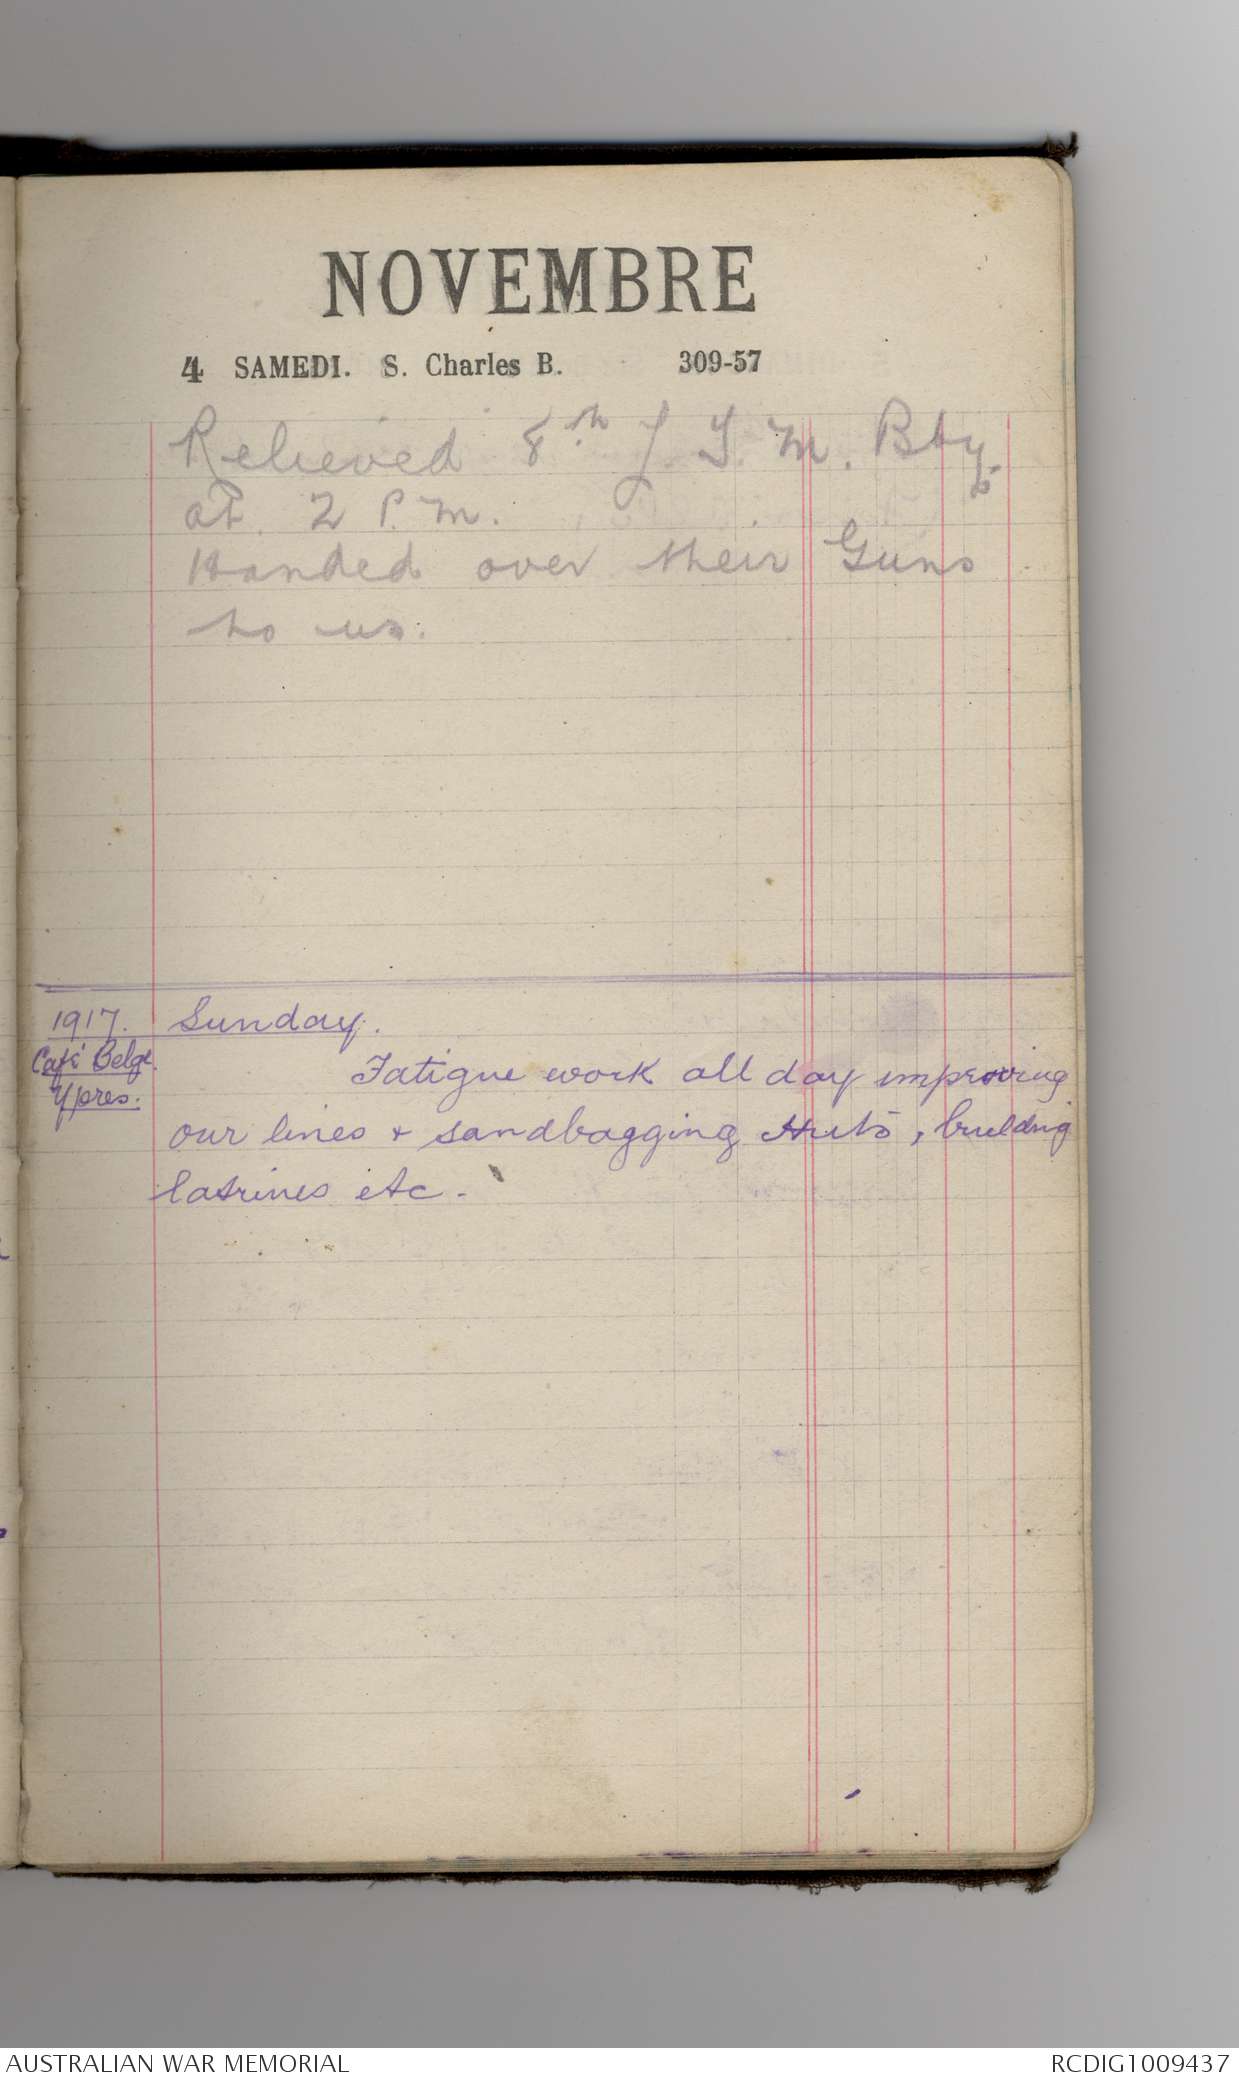 NOVEMBRE
4 SAMEDI. S. Charles B. 309-57
Relieved 8th L T. M. Bty.
at 2 P.M.
Handed over their Guns
to us.
1917. Sunday.
Café Belge.
Ypres.
Fatigue work all day improving
our lines + sandbagging Huts, building
latrines etc.
AUSTRALIAN WAR MEMORIAL
RCDIG1009437